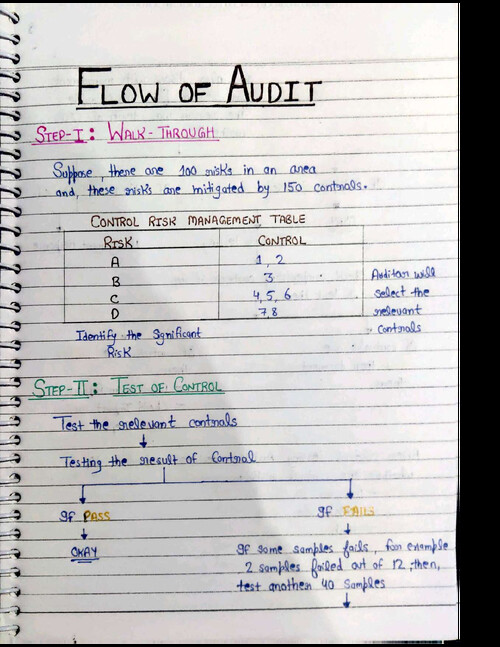 FLOW OF AUDIT
STEP-I: WALK-THROUGH
Suppose, there are 100 risks in an area
and, these risks are mitigated by 150 controls.
CONTROL RISK MANAGEMENT TABLE
RISK CONTROL
A 1, 2
B 3
C 4, 5, 6
D 7,8
Auditor will
select the
relevant
controls
Identify the Significant
Risk
STEP-II: TEST OF CONTROL
Test the relevant controls
Testing the result of Control
If PASS
OKAY
If FAILS
If some samples fails, for example
2 samples failed out of 12, then,
test another 40 samples